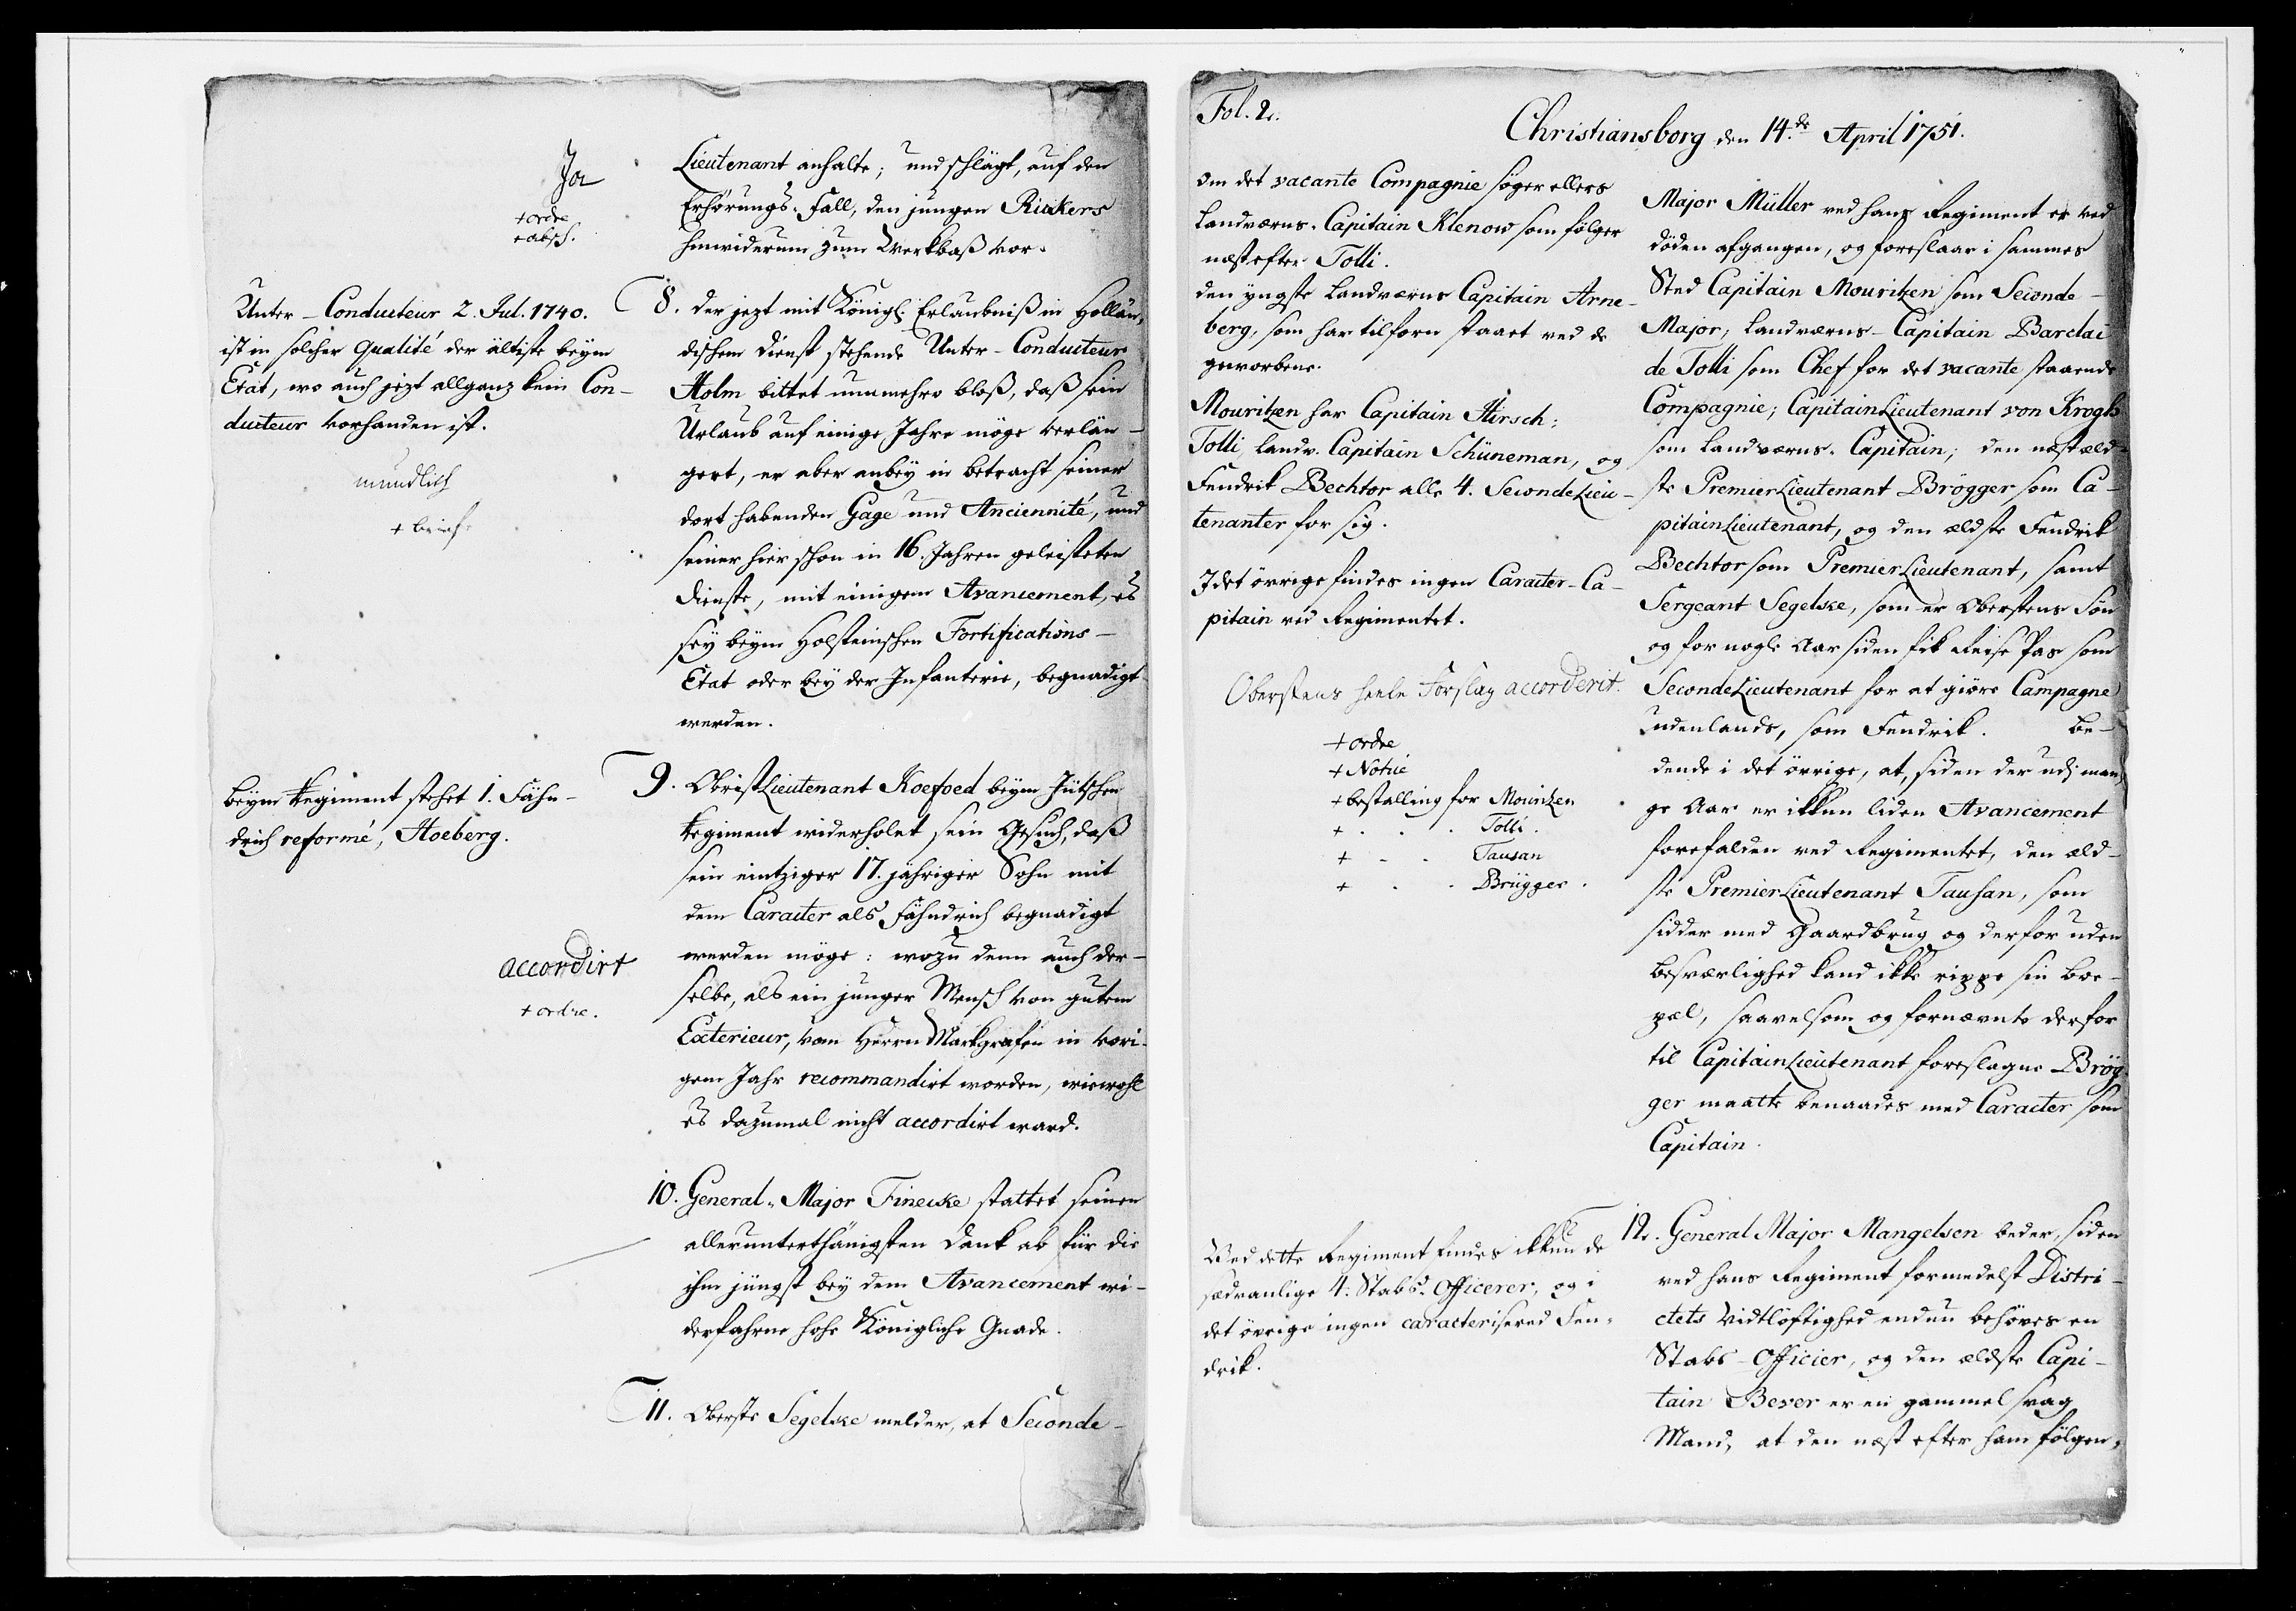 Ja
+ ordre
+ absch.
Lieutenant anhalte; und schlägt, auf den
Erhörungs-Fall, den jungen Riekers
hinwiderum zum Werkbaß vor.
Unter-Conducteur 2. Jul. 1740.
ist in solcher qualité der ältiste beÿm
Etat, wo auch jezt allganz kein Con-
ducteur vorhanden ist.
mundlich
+ brief.
8. der jezt mit Königl. Erlaubniß in Hollän-
dischem Dienst stehende Unter-Conducteur
Holm bittet nunmehro bloß, daß sein
Urlaub auf einige Jahre möge verlän-
gert, er aber anbeÿ in betracht seiner
dort habenden Gage und Anciennité, und
seiner hier schon in 16. Jahren geleisteten
Dienste, mit einigem Avancement, es
seÿ beÿm Holsteinschen Fortifications-
Etat oder beÿ der Infanterie, begnadigt
werden.
beÿm Regiment stehet 1. Fähn-
drich reformé, Hoeberg.
accordirt
+ ordre.
9. ObristLieutenant Koefoed beÿm Jütschen
Regiment widerholet sein Gesuch, daß
sein eintziger 17. jähriger Sohn mit
dem Caracter als Fähndrich begnadigt
werden möge: wozu denn auch der-
selbe, als ein junger Mensch von gutem
Exterieur, vom Herrn Markgrafen in vori-
gem Jahr recommandirt worden, wiewohl
es dazumal nicht accordirt ward.
10. General-Major Finecke stattet seinen
allerunterthänigsten Dank ab für die
ihm jüngst beÿ dem Avancement wi-
derfahrne hohe Königliche Gnade.
11. Oberste Segelcke melder, at Seconde-
Fol. 2.
Christiansborg den 14.de April 1751.
Om det vacante Compagnie søger ellers
Landværns-Capitain Klenow som følger
næst efter Tolli.
den yngste Landværns Capitain Arne-
berg, som har tilforn staaet ved de
gevorbene.
Mouritzen har Capitain Hirsch;
Tolli, Landv. Capitain Schüneman, og
Fendrik Bechtor alle 4. SecondeLieu-
tenanter for sig.
I det övrige findes ingen Caracter-Ca-
pitain ved Regimentet.
Oberstens heele Forslag accorderit.
+ ordre
+ Notice
+ bestalling for Mouritzen
+ . . . Tolli.
+ - - Tausan
+ . . Brügger.
Major Müller ved hans Regiment er ved
døden afgangen, og foreslaar i sammes
Sted Capitain Mouritzen som Seconde-
Major; Landværns-Capitain Barclai
de Tolli som Chef for det vacante staaende
Compagnie; CapitainLieutenant von Krogh
som Landværns-Capitain; den næstæld-
ste PremierLieutenant Brögger som Ca-
pitainLieutenant, og den ældste Fendrik
Bechtor som PremierLieutenant, samt
Sergeant Segelcke, som er Oberstens Søn
og for nogle Aar siden fik Reise Pas som
SecondeLieutenant for at giøre Campagne
udenlands, som Fendrik. be-
dende i det övrige, at, siden der udj man-
ge Aar er ikkun liden Avancement
forefalden ved Regimentet, den æld-
ste PremierLieutenant Tausan, som
sidder med Gaardbrug og derfor uden
besværlighed kand ikke rippe sin boe-
pæl, saavelsom og fornævnte derfor
til CapitainLieutenant foreslagne Brög-
ger maatte benaades med Caracter som
Capitain.
Ved dette Regiment findes ikkun de
sædvanlige 4. Stabs-Officerer, og i
det övrige ingen caracteriseret Fen-
drik.
12. General Major Mangelsen beder, siden
ved hans Regiment formedelst Distri-
ctets Vidtløftighed endnu behøves en
Stabs-Officier, og den ældste Capi-
tain Bever er en gammel svag
Mand, at den næst efter ham følgen-